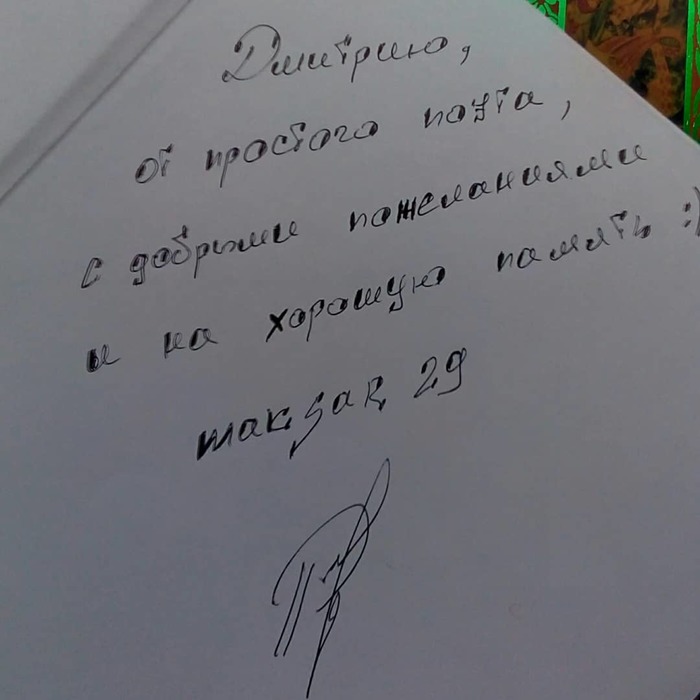 Дмитрию,
от простого поэта,
с добрыми пожеланиями
и на хорошую память :)
maksak 29